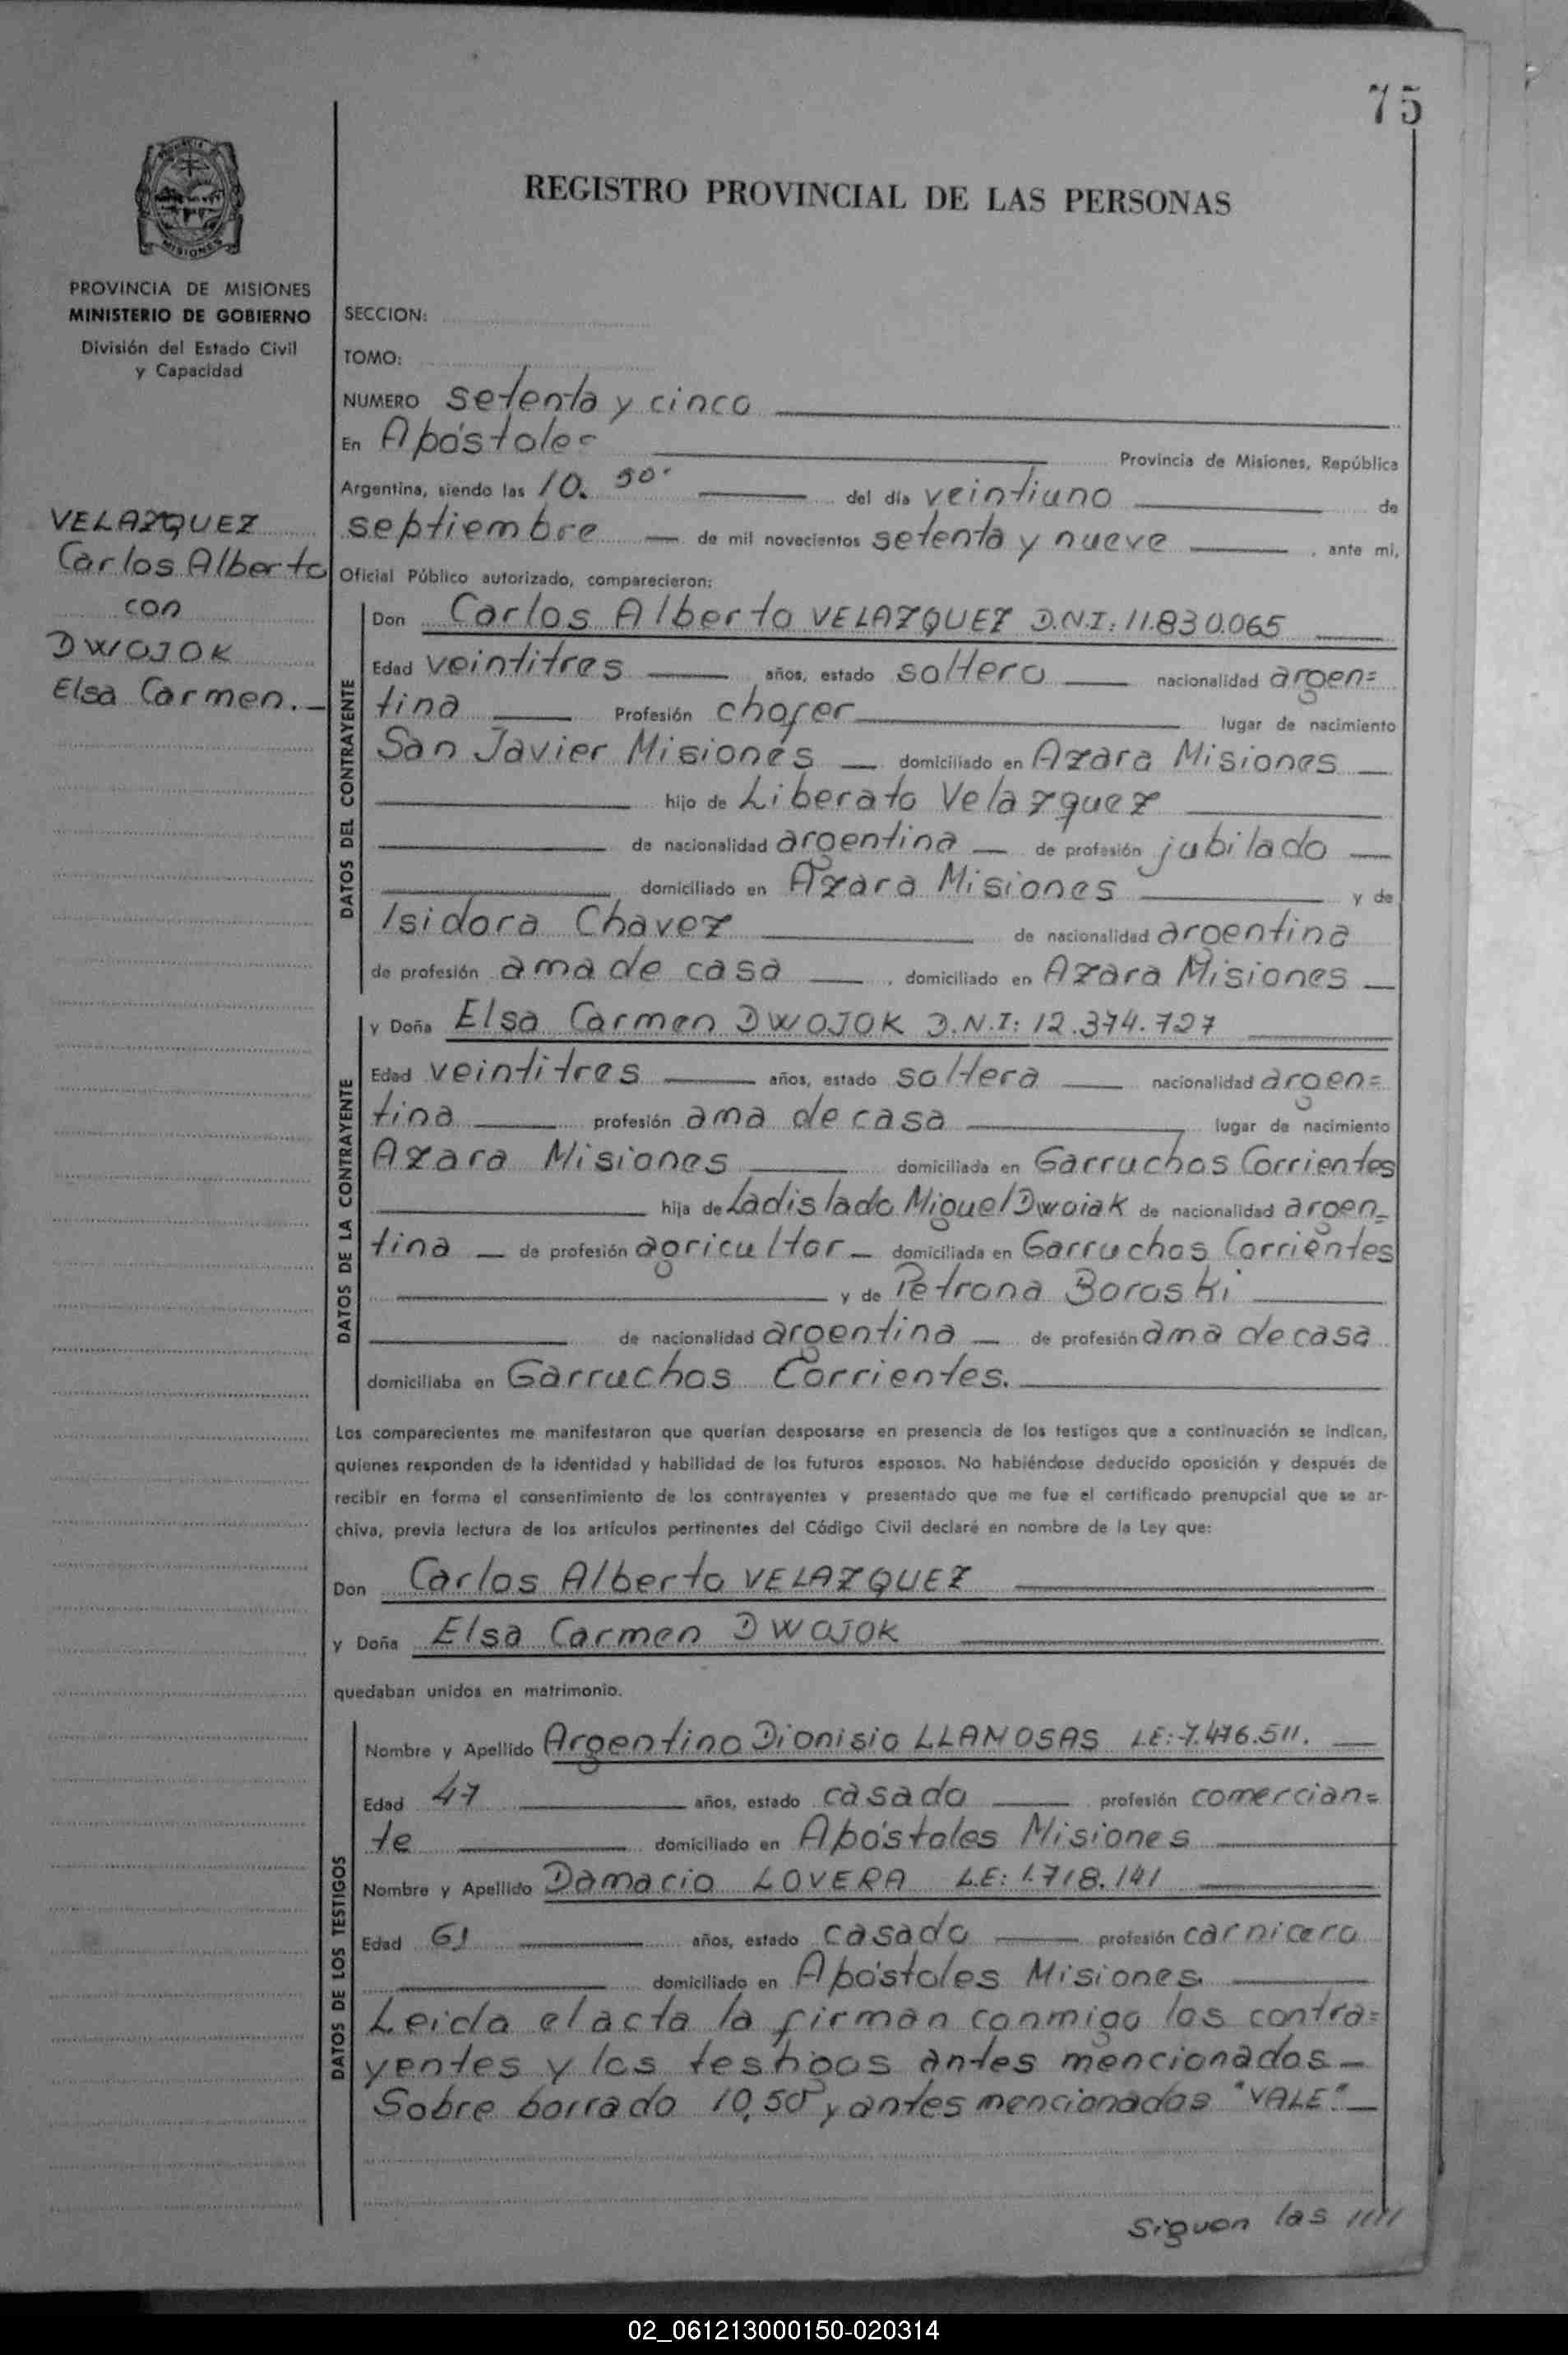 75
REGISTRO PROVINCIAL DE LAS PERSONAS
MISIONES
PROVINCIA DE MISIONES
MINISTERIO DE GOBIERNO
División del Estado Civil
y Capacidad
VELAZQUEZ
Carlos Alberto
con
DWOJOK
Elsa Carmen.-
SECCION:
TOMO:
NUMERO setenta y cinco
En Apóstoles Provincia de Misiones, República
Argentina, siendo las 10. 50' del día veintiuno de
septiembre de mil novecientos setenta y nueve , ante mi,
Oficial Público autorizado, comparecieron:
DATOS DEL CONTRAYENTE
Don Carlos Alberto VELAZQUEZ D.N.I: 11.830.065
Edad veintitres años, estado soltero nacionalidad argen=
tina Profesión chofer lugar de nacimiento
San Javier Misiones domiciliado en Azara Misiones
hijo de Liberato Velazquez
de nacionalidad argentina de profesión jubilado
domiciliado en Azara Misiones y de
Isidora Chavez de nacionalidad argentina
de profesión ama de casa , domiciliado en Azara Misiones
DATOS DE LA CONTRAYENTE
y Doña Elsa Carmen DWOJOK D.N.I: 12.374.727
Edad veintitres años, estado soltera nacionalidad argen=
tina profesión ama de casa lugar de nacimiento
Azara Misiones domiciliada en Garruchos Corrientes
hija de Ladislado Miguel Dwoiak de nacionalidad argen=
tina de profesión agricultor domiciliada en Garruchos Corrientes
y de Petrona Boroski
de nacionalidad argentina de profesión ama de casa
domiciliaba en Garruchos Corrientes.
Los comparecientes me manifestaron que querían desposarse en presencia de los testigos que a continuación se indican,
quienes responden de la identidad y habilidad de los futuros esposos. No habiéndose deducido oposición y después de
recibir en forma el consentimiento de los contrayentes y presentado que me fue el certificado prenupcial que se ar-
chiva, previa lectura de los artículos pertinentes del Código Civil declaré en nombre de la Ley que:
Don Carlos Alberto VELAZQUEZ
y Doña Elsa Carmen DWOJOK
quedaban unidos en matrimonio.
DATOS DE LOS TESTIGOS
Nombre y Apellido Argentino Dionisio LLAMOSAS LE: 7.476.511.
Edad 47 años, estado casado profesión comercian=
te domiciliado en Apóstoles Misiones
Nombre y Apellido Damacio LOVERA L.E: 1.718.141
Edad 61 años, estado casado profesión carnicero
domiciliado en Apóstoles Misiones.
Leida el acta la firman conmigo los contra=
yentes y los testigos antes mencionados-
Sobre borrado 10,50 y antes mencionados "VALE".-
Siguen las /////
02_061213000150-020314